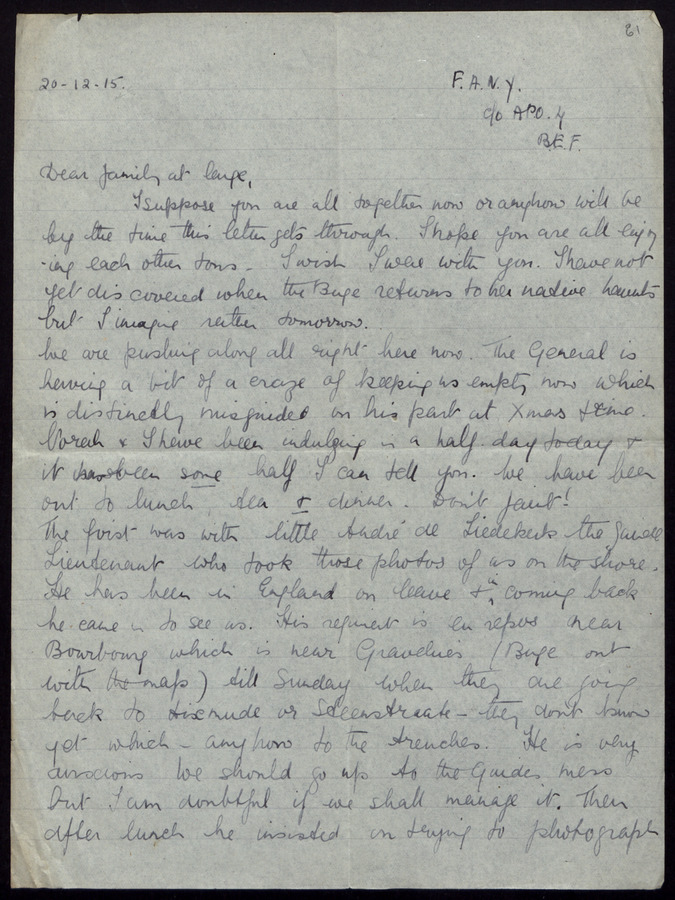 61
20-12-15.
F.A.N.Y.
c/o APO. 4
B.E.F.
Dear family at large,
I suppose you are all together now or anyhow will be
by the time this letter gets through. I hope you are all enjoy
-ing each other tons - I wish I were with you. I have not
yet discovered when the Buge returns to her native haunts
but I imagine rather tomorrow.
We are pushing along all right here now. The General is
having a bit of a craze of keeping us empty now which
is distinctly misguided on his part at Xmas time.
& I have been indulging in a half-day today &
it has been some half I can tell you. We have been
out to lunch, tea & dinner. Don't faint!
The first was with little André de Liedekerke the
Lieutenant who took those photos of us on the shore.
He has been in England on leave & coming back
he came in to see us. His regiment is en repos near
Bourbourg which is near Gravelines (Buge out
with the map) till Sunday when they are going
back to Dixmude or Steenstraate - they don't know
yet which - anyhow to the trenches. He is very
anxious we should go up to the Guides mess
but I am doubtful if we shall manage it. Then
after lunch he insisted on trying to photograph